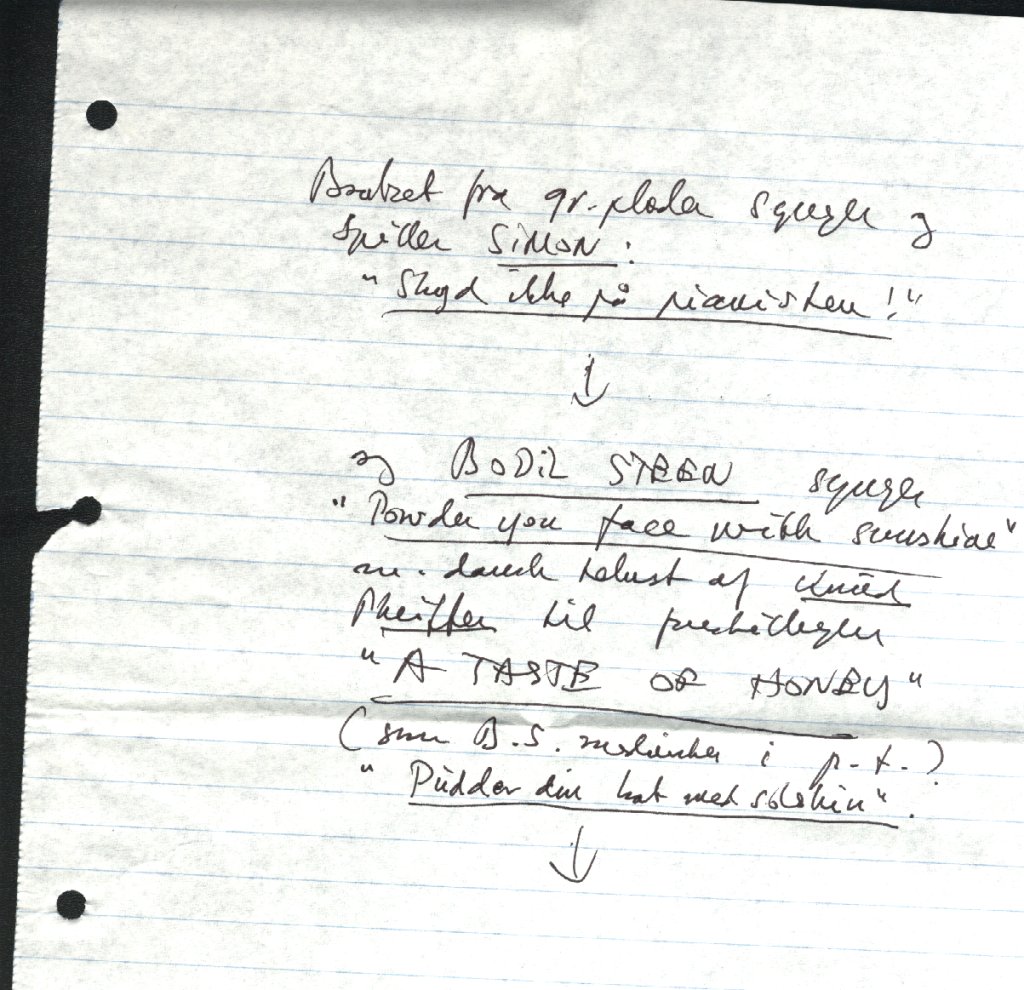 fra gr.plader synger og
spiller SIMON:
"Skyd ikke på pianisten!"
↓
og BODIL STEEN synger
"Powder you face with sunshine"
m. dansk tekst af Knud
Pheiffer til forestillingen
"A TASTE OF HONEY"
(som B.S. medvirker i p.t.)
"Pudder din hat med solskin".
↓